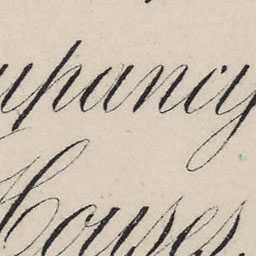 upancy
Houses.